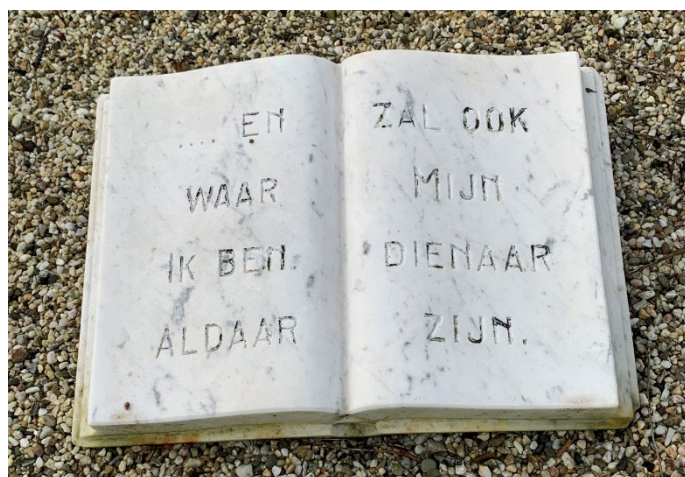 .... EN
WAAR
IK BEN.
ALDAAR
ZAL OOK
MIJN
DIENAAR
ZIJN.